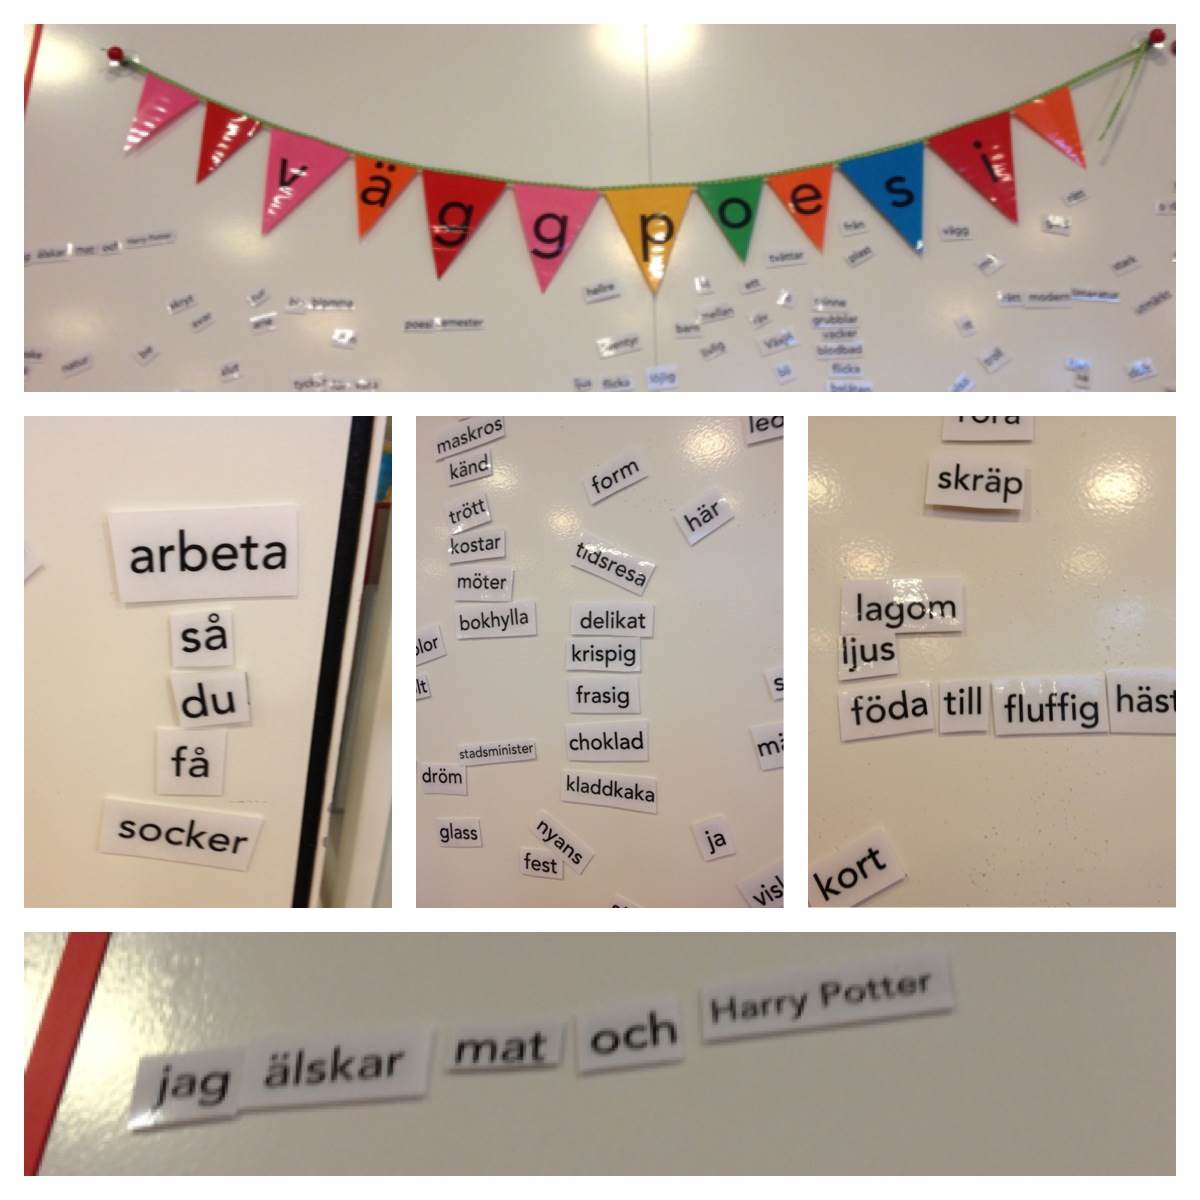 väggpoesi
från
rätt
vägg
jag älskar mat och Harry Potter
tvättar
plast
stark
hellre
ett
skryt
blomma
mellan
grubblar
vacker
blodbad
flicka
rätt modern litteratur
utmärkt
poesi semester
natur
troll
ljus flicka löjlig
arbeta
så
du
få
socker
maskros
känd
trött
kostar
möter
bokhylla
form
här
tidsresa
delikat
krispig
frasig
choklad
kladdkaka
stadsminister
dröm
glass
nyans
fest
ja
skräp
lagom
ljus
föda till fluffig häst
kort
jag älskar mat och Harry Potter